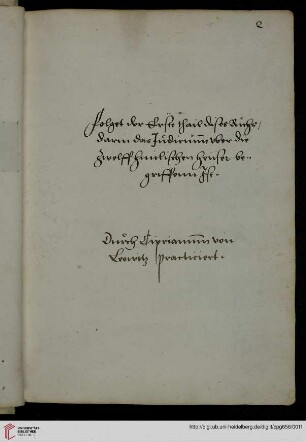 2
Folget der Erste thail dises Buchs /
darin das Judicium vber die
zwelff himlischen heuser be=
griffenn Ist.
Durch Ciprianum von
Leowitz practiciert.
UNIVERSITÄTS-
BIBLIOTHEK
HEIDELBERG
http://digi.ub.uni-heidelberg.de/diglit/cpg656/0011